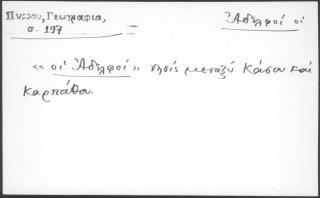 Πύρρου, Γεωγραφία,
σ. 197
Ἀδελφοί οἱ
«οἱ Ἀδελφοί» νησίς μεταξύ Κάσου καί
Καρπάθου.